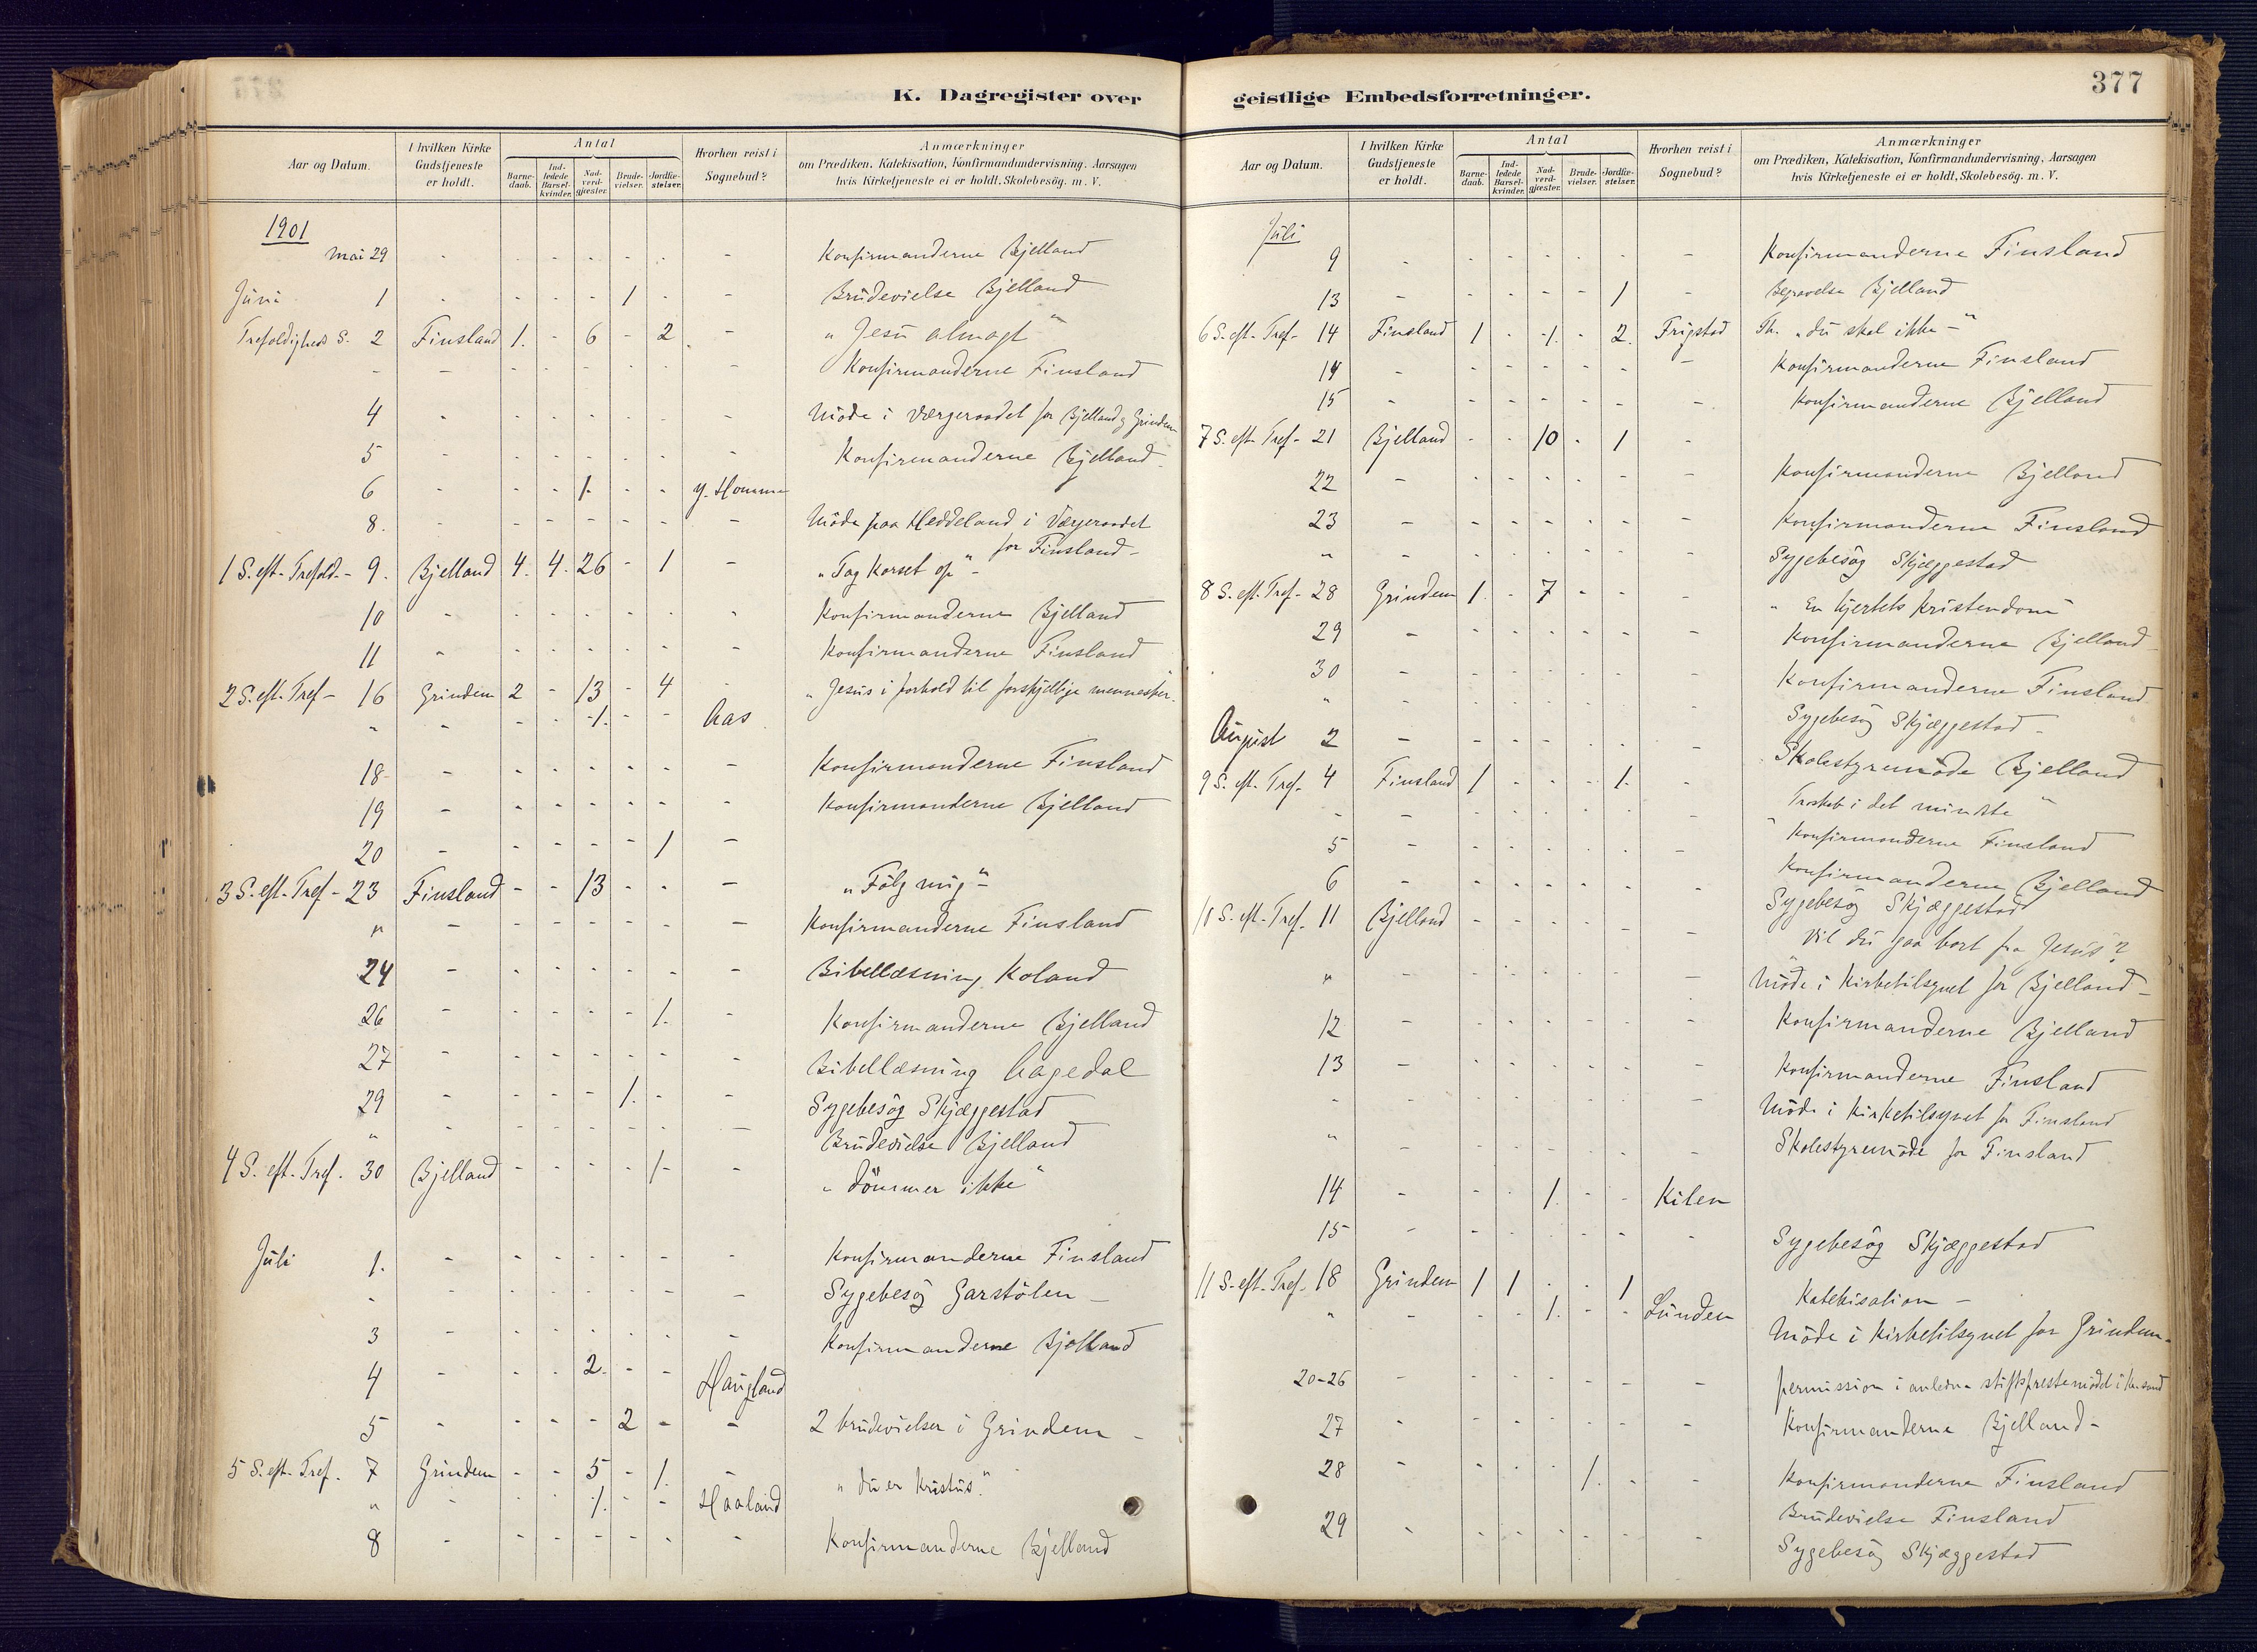 K. Dagregister over
Aar og Datum.
I hvilken Kirke Gudstjeneste er holdt.
Antal
Barnedaab.
Indledede Barselkvinder.
Nadverdgjester.
Brudevielser.
Jordfæstelser.
Hvorhen reist i Sognebud?
Anmærkninger
om Prædiken, Katekisation, Konfirmandundervisning, Aarsagen
hvis Kirketjeneste ei er holdt, Skolebesög. m. V.
1901
Mai 29 - - - - - - - Konfirmanderne Bjelland
Juni 1 - - - - 1 - - Brudevielse Bjelland
Trefoldigheds S. 2 Finsland 1. - 6 - 2 - "Jesu almagt"
- - - - - - - - Konfirmanderne Finsland
4 - - - - - - - Möde i Værgeraadet for Bjelland og Grindem
5 - - - - - - - Konfirmanderne Bjelland
6 - - - 1. - - Y. Homme
8. - - - - - - - Möde paa Heddeland i Værgeraadet
for Finsland-
1 S. eft. Trefold.- 9. Bjelland 4. 4. 26 - 1 - "Tag korset op"-
10 - - - - - - - Konfirmanderne Bjelland
11 - - - - - - - Konfirmanderne Finsland
2 S. eft. Tref- 16 Grindem 2 - 13 - 4 - "Jesus i forhold til forskjellige mennesker.
" - - - 1. - - Aas
18- - - - - - - - Konfirmanderne Finsland
19 - - - - - - - Konfirmanderne Bjelland
20 - - - - - 1 -
3 S. eft. Tref- 23 Finsland - - 13 - - - "Fölg mig"-
" - - - - - - - Konfirmanderne Finsland
24 - - - - - - - Bibellæsning Koland
26 - - - - - 1. - Konfirmanderne Bjelland
27 - - - - - - - Bibellæsning Aagedal
29 - - - - 1. - - Sygebesög Skjæggestad
" - - - - - - - Brudevielse Bjelland
4 S. eft. Tref. 30 Bjelland - - - - 1- - "Dömmer ikke"
Juli 1. - - - - - - - Konfirmanderne Finsland
- - - - - - - - Sygebesög Garstölen -
3 - - - - - - - Konfirmanderne Bjelland
4 - - - 2. - - Haugland
5 - - - - 2 - - 2 brudevielser i Grindem -
5 S. eft. Tref. 7 Grindem - - 5 - 1. - "Du er Kristus."
" - - - 1. - - Haaland
8 - - - - - - - Konfirmanderne Bjelland
geistlige Embedsforretninger.
377
Aar og Datum.
I hvilken Kirke Gudstjeneste er holdt.
Antal
Barnedaab.
Indledede Barselkvinder.
Nadverdgjester.
Brudevielser.
Jordfæstelser.
Hvorhen reist i Sognebud?
Anmærkninger
om Prædiken, Katekisation, Konfirmandundervisning, Aarsagen
hvis Kirketjeneste ei er holdt, Skolebesög. m. V.
Juli
9 - - - - - - - Konfirmanderne Finsland
13 - - - - - 1 - Begravelse Bjelland
6 S. eft. Tref- 14 Finsland 1 - 1. - 2. Frigstad Th. "du skal ikke-"
14 - - - - - - - Konfirmanderne Finsland
15 - - - - - - - Konfirmanderne Bjelland
7 S. eft. Tref- 21 Bjelland - - 10 - 1 -
22 - - - - - - - Konfirmanderne Bjelland
23 - - - - - - - Konfirmanderne Finsland
" - - - - - - - Sygebesög Skjæggestad
8 S. eft. Tref- 28 Grindem 1. - 7 - - - "En hjertets kristendom"
29 - - - - - - - Konfirmanderne Bjelland
30 - - - - - - - Konfirmanderne Finsland
" - - - - - - - Sygebesög Skjæggestad -
August 2 - - - - - - - Skolestyremöde Bjelland
9 S. eft. Tref- 4 Finsland 1 - - - 1. - Troskab i det mindste"
- - - - - - - - Konfirmanderne Finsland
5 - - - - - - - Konfirmanderne Bjelland
6 - - - - - - - Sygebesög Skjæggestad
10 S. eft. Tref. 11 Bjelland - - - - - - Vil du gaa bort fra Jesus?
" - - - - - - - Möde i Kirketilsynet for Bjelland -
12 - - - - - - - Konfirmanderne Bjelland
13 - - - - - - - Konfirmanderne Finsland
- - - - - - - - Möde i Kirketilsynet for Finsland
" - - - - - - - Skolestyremöde for Finsland
14 - - - 1. - - Kilen
15 - - - - - - - Sygebesög Skjæggestad
11 S. eft. Tref. 18 Grindem 1 1 - - 1 Katekisation -
" - - - 1. - - Lunden Möde i Kirketilsynet for Grindem-
20-26 - - - - - - - permission i anledn. stiftsprestemödet i Kr.sand
27 - - - - - - - Konfirmanderne Bjelland-
28 - - - - 1. - - Konfirmanderne Finsland
Brudevielse Finsland
29 - - - - - - - Sygebesög Skjæggestad